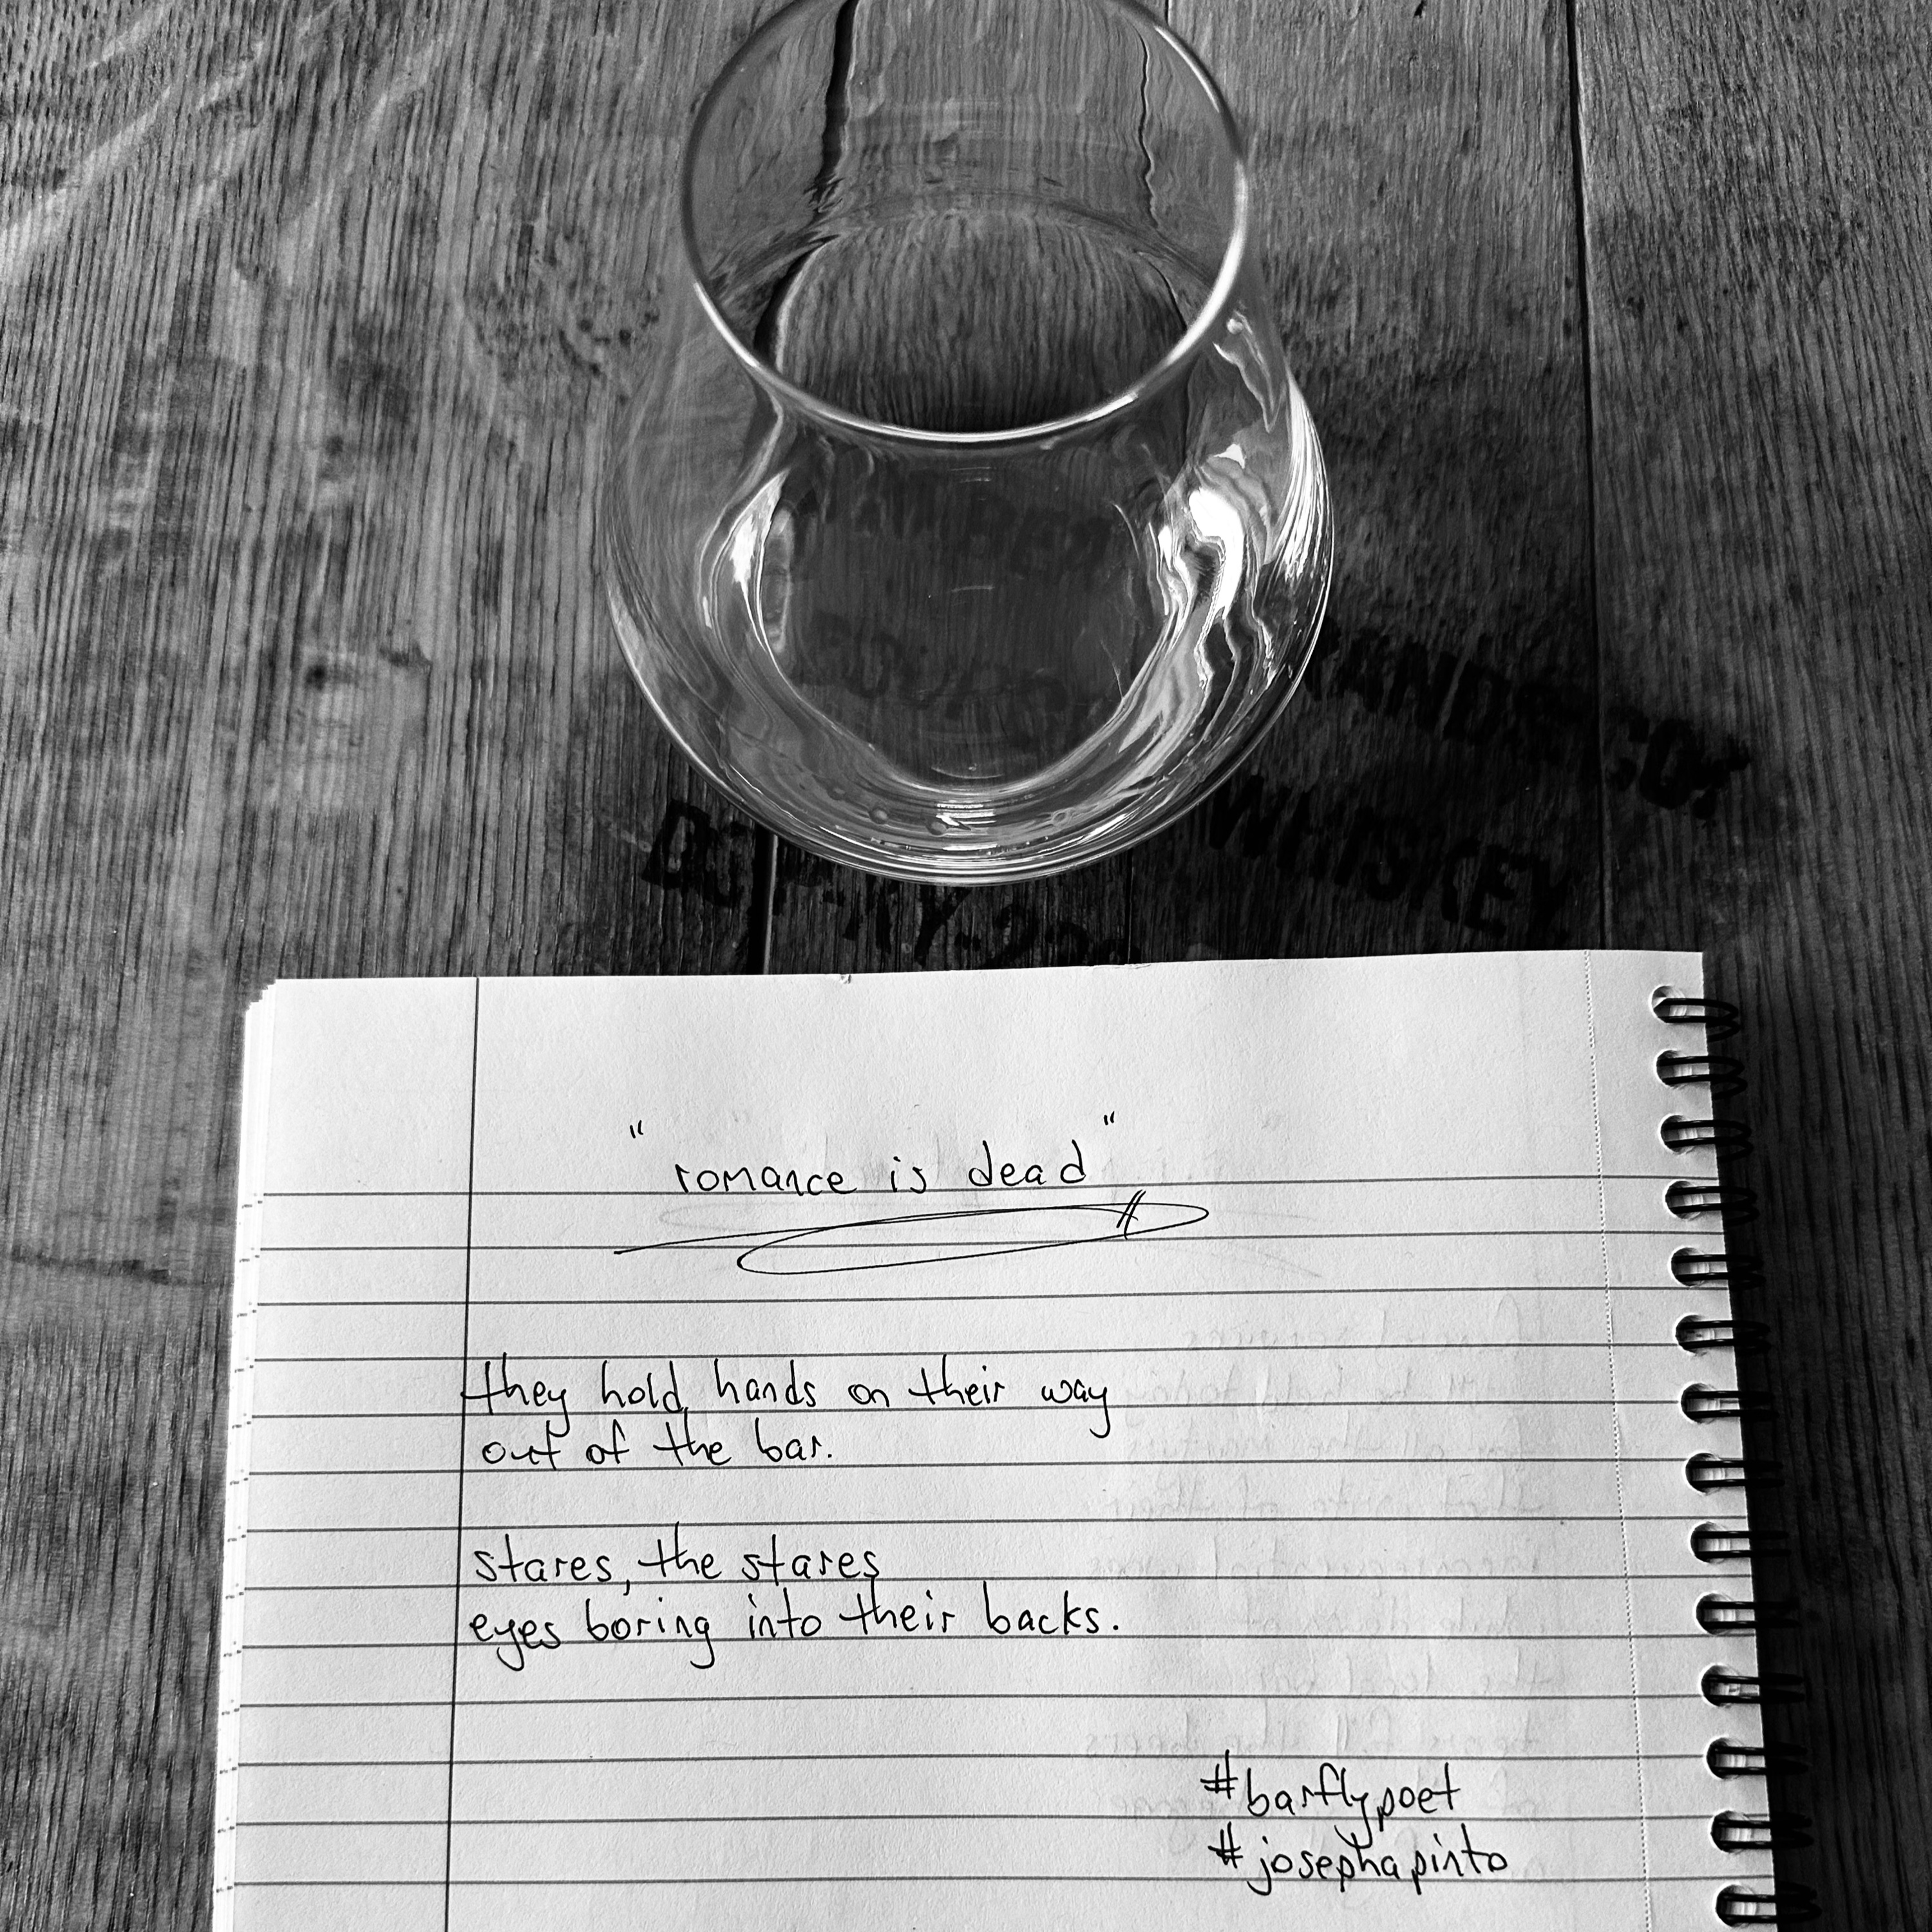 AND & CO.
WHISKEY
DSP-KY-230
" romance is dead "
they hold hands on their way
out of the bar.
stares, the stares
eyes boring into their backs.
#barflypoet
#josephapinto